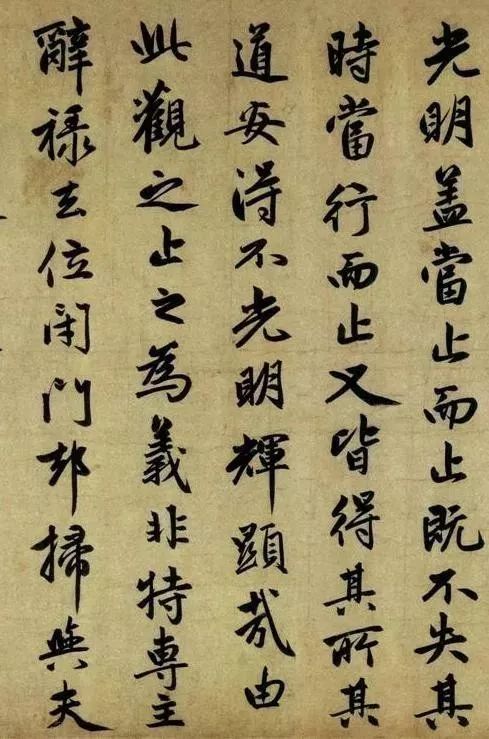 光明盖當止而止既不失其
時當行而止又皆得其所其
道安得不光明輝顯哉由
此觀之止之為義非特専主
辭祿去位閉門却掃與夫